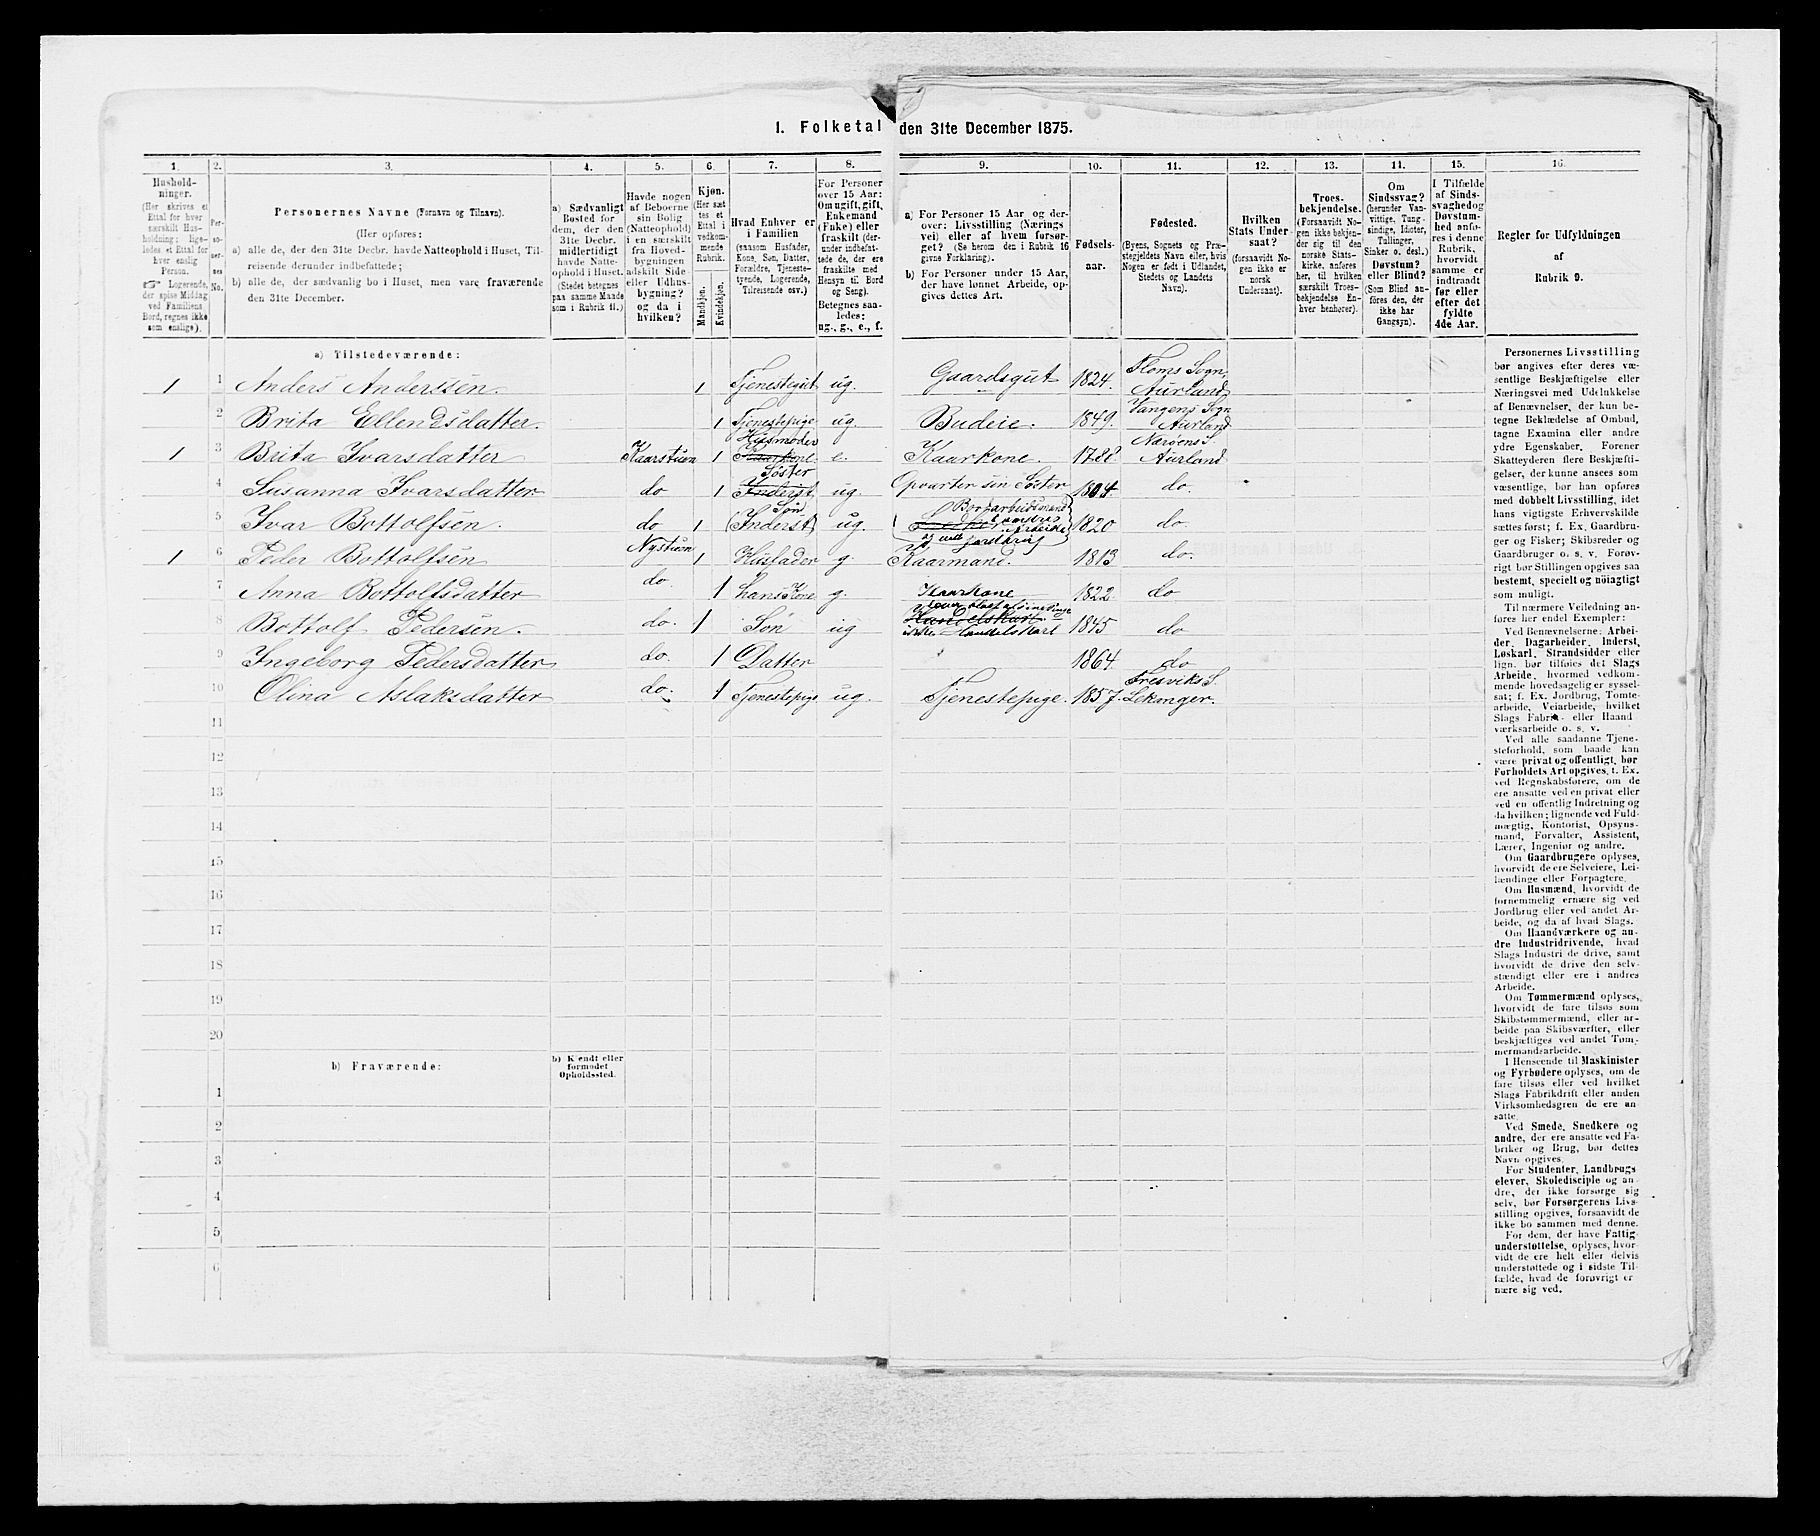 1. Folketal den 31te December 1875.
1. 2. 3. 4. 5. 6. 7. 8. 9. 10. 11. 12. 13. 14. 15. 16.
Husholdninger.
(Her skrives et
Ettal for hver
særskilt Husholdning; ligeledes
et Ettal for
hver enslig
Person.
☞ Logerende,
der spise Middag
ved Familiens
Bord, regnes ikke
som enslige).
Personernes No.
Personernes Navne (Fornavn og Tilnavn).
(Her opføres:
a) alle de, der den 31te Decbr. havde Natteophold i Huset, Tilreisende derunder indbefattede;
b) alle de, der sædvanlig bo i Huset, men vare fraværende
den 31te December.
a) Sædvanligt
Bosted for
dem, der den
31te Decbr.
midlertidigt
havde Natteophold i Huset.
(Stedet betegnes
paa samme Maade
som i Rubrik 11.)
Havde nogen
af Beboerne
sin Bolig
(Natteophold)
i en særskilt
fra Hovedbygningen
adskilt Side-
eller Udhusbygning?
og da i
hvilken?
Kjøn.
(Her sættes et
Ettal i
vedkommende
Rubrik.
Mandkjøn.
Kvindekjøn.
Hvad Enhver er
i Familien
(saasom Husfader,
Kone, Søn, Datter,
Forældre, Tjenestetyende, Logerende,
Tilreisende osv.)
For Personer
over 15 Aar:
Om ugift, gift,
Enkemand
(Enke) eller
fraskilt (derunder indbefattede de, der ere
fraskilte med
Hensyn til Bord
og Seng).
Betegnes saaledes:
ug., g., e., f.
a) For Personer 15 Aar og derover: Livsstilling (Næringsvei) eller af hvem forsørget? (Se herom den i Rubrik 16
givne Forklaring).
b) For Personer under 15 Aar,
der have lønnet Arbeide, opgives dettes Art.
Fødselsaar.
Fødested.
(Byens, Sognets og Præstegjeldets Navn eller, hvis
Nogen er født i Udlandet,
Stedets og Landets
Navn).
Hvilken
Stats Undersaat?
(forsaavidt Nogen ikke er
norsk
Undersaat).
Troesbekjendelse.
(Forsaavidt Nogen ikke bekjender sig til den
norske Statskirke, anføres
her, til hvilken
særskilt Troesbekjendelse Enhver henhører).
Om
Sindssvag?
(herunder Vanvittige, Tungsindige, Idioter,
Tullinger,
Sinker o. desl.)
Døvstum?
eller Blind?
(Som Blind anføres den, der
ikke har
Gangsyn).
I Tilfælde
af Sindssvaghed og
Døvstumhed anføres i denne
Rubrik,
hvorvidt
samme er
indtraadt
før eller
efter det
fyldte
4de Aar.
Regler for Udfyldningen
af
Rubrik 9.
a) Tilstedeværende:
1 1 Anders Anderssen. 1 Tjenestegut ug. Gaardsgut 1824. Floms Sogn, Aurland
2 Brita Ellendsdatter. 1 Tjenestepige ug. Budeie. 1849. Vangens Sogn Aurland
1 3 Brita Ivarsdatter Kaarstuen 1 Husmoder Kaarkone e. Kaarkone. 1788 Nærøens Aurland
4 Susanna Ivarsdatter do 1 Søster Inderst ug. Opvarter sin Søster 1804 do.
5 Ivar Bottolfsen. do 1 Søn (Inderst) ug. 1820 do
1 6 Peder Bottolfsen Nystuen 1 Husfader g Kaarmand. 1813 do.
7 Anna Bottolfsdatter do. 1 hans Kone g. Kaarkone 1822 do
8 Bottolf Pedersen. do. 1 Søn ug Handelskarl 1845 do
9 Ingeborg Pedersdatter do. 1 Datter 1864. do
10 Olina Aslaksdatter do. 1 Tjenestepige ug. Tjenestepige. 1857. Fresviks S. Lekanger.
11
12
13
14
15
16
17
18
19
20
b) Fraværende:
b) Kjendt eller
formodet
Opholdssted.
1
2
3
4
5
6
Personernes Livsstilling
bør angives efter deres væsentlige Beskjæftigelse eller
Næringsvei med Udelukkelse
af Benævnelser, der kun betegne Beklædelse af Ombud,
tagne Examina eller andre
ydre Egenskaber. Forener
Skatteyderen flere Beskjæftigelser, der kunne ansees som
væsentlige, bør han opføres
med dobbelt Livsstilling, idet
hans vigtigste Erhvervskilde
sættes først; f. Ex. Gaardbruger og Fisker; Skibsreder og
Gaardbruger o. s. v. Forøvrigt bør Stillingen opgives saa
bestemt, specielt og nöiagtigt
som muligt.
Til nærmere Veiledning anføres her endel Exempler:
Ved Benævnelserne: Arbeider, Dagarbeider, Inderst,
Løskarl, Strandsidder eller
lign. bør tilføies det Slags
Arbeide, hvormed vedkommende hovedsagelig er sysselsat; f. Ex. Jordbrug, Tomtearbeide, Veiarbeide, hvilket
Slags Fabrik- eller Haandværksarbeide o. s. v.
Ved alle saadanne Tjenesteforhold, som baade kan
være privat og offentligt, bør
Forholdets Art opgives, t. Ex.
ved Regnskabsførere, om de
ere ansatte ved en privat eller
ved en offentlig Indretning og
da hvilken; lignende ved Fuldmægtig, Kontorist, Opsynsmand, Forvalter, Assistent,
Lærer, Ingeniør og andre.
Om Gaardbrugere oplyses,
hvorvidt de ere Selveiere, Leilændinge eller Forpagtere.
Om Husmænd, hvorvidt de
fornemmelig ernære sig ved
Jordbrug eller ved andet Arbeide, og da af hvad Slags.
Om Haandværkere og andre Industridrivende, hvad
Slags Industri de drive, samt
hvorvidt de drive den selvstændigt eller ere i andres
Arbeide.
Om Tømmermænd oplyses,
hvorvidt de fare tilsøs som
Skibstømmermænd, eller arbeide paa Skibsværfter, eller
beskjæftiges ved andet Tømmermandsarbeide.
I Henseende til Maskinister
og Fyrbødere oplyses, om de
fare tilsøs eller ved hvilket
Slags Fabrikdrift eller anden
Virksomhedsgren de ere ansatte.
Ved Smede, Snedkere og
andre, der ere ansatte ved Fabriker og Brug, bør dettes
Navn opgives.
For Studenter, Landbrugselever, Skoledisciple og andre, der ikke forsørge sig
selv, bør Forsørgerens Livsstilling opgives, forsaavidt de
ikke bo sammen med denne.
For dem, der have Fattigunderstøttelse, oplyses, hvorvidt de ere helt eller delvis
understøttede og i sidste Tilfælde, hvad de forøvrigt ernære sig ved.